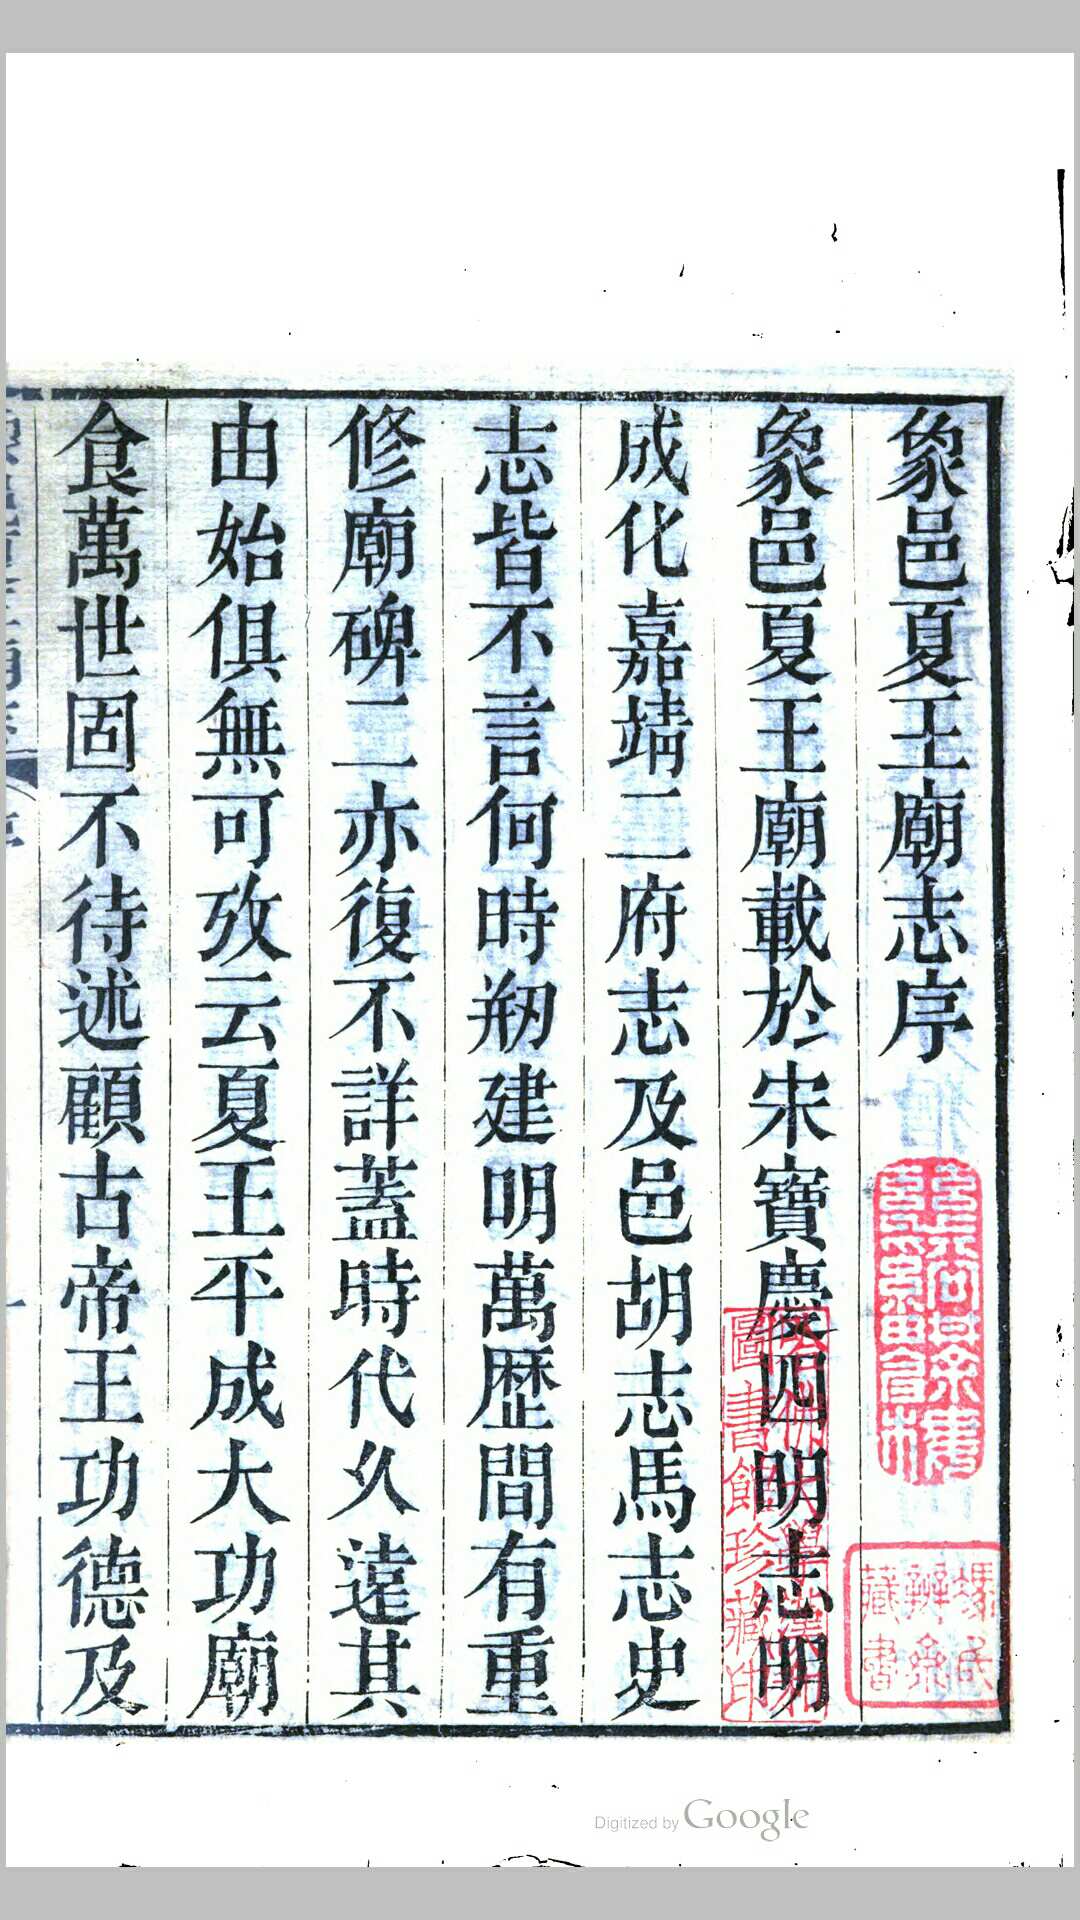 象邑夏王廟志序
象邑夏王廟載於宋寶慶四明志明
成化嘉靖二府志及邑胡志馬志史
志皆不言何時剏建明萬歴間有重
修廟碑二亦復不詳蓋時代久遠其
由始俱無可攷云夏王平成大功廟
食萬世固不待述顧古帝王功德及
圖書館珍藏印
藏書
Digitized by Google